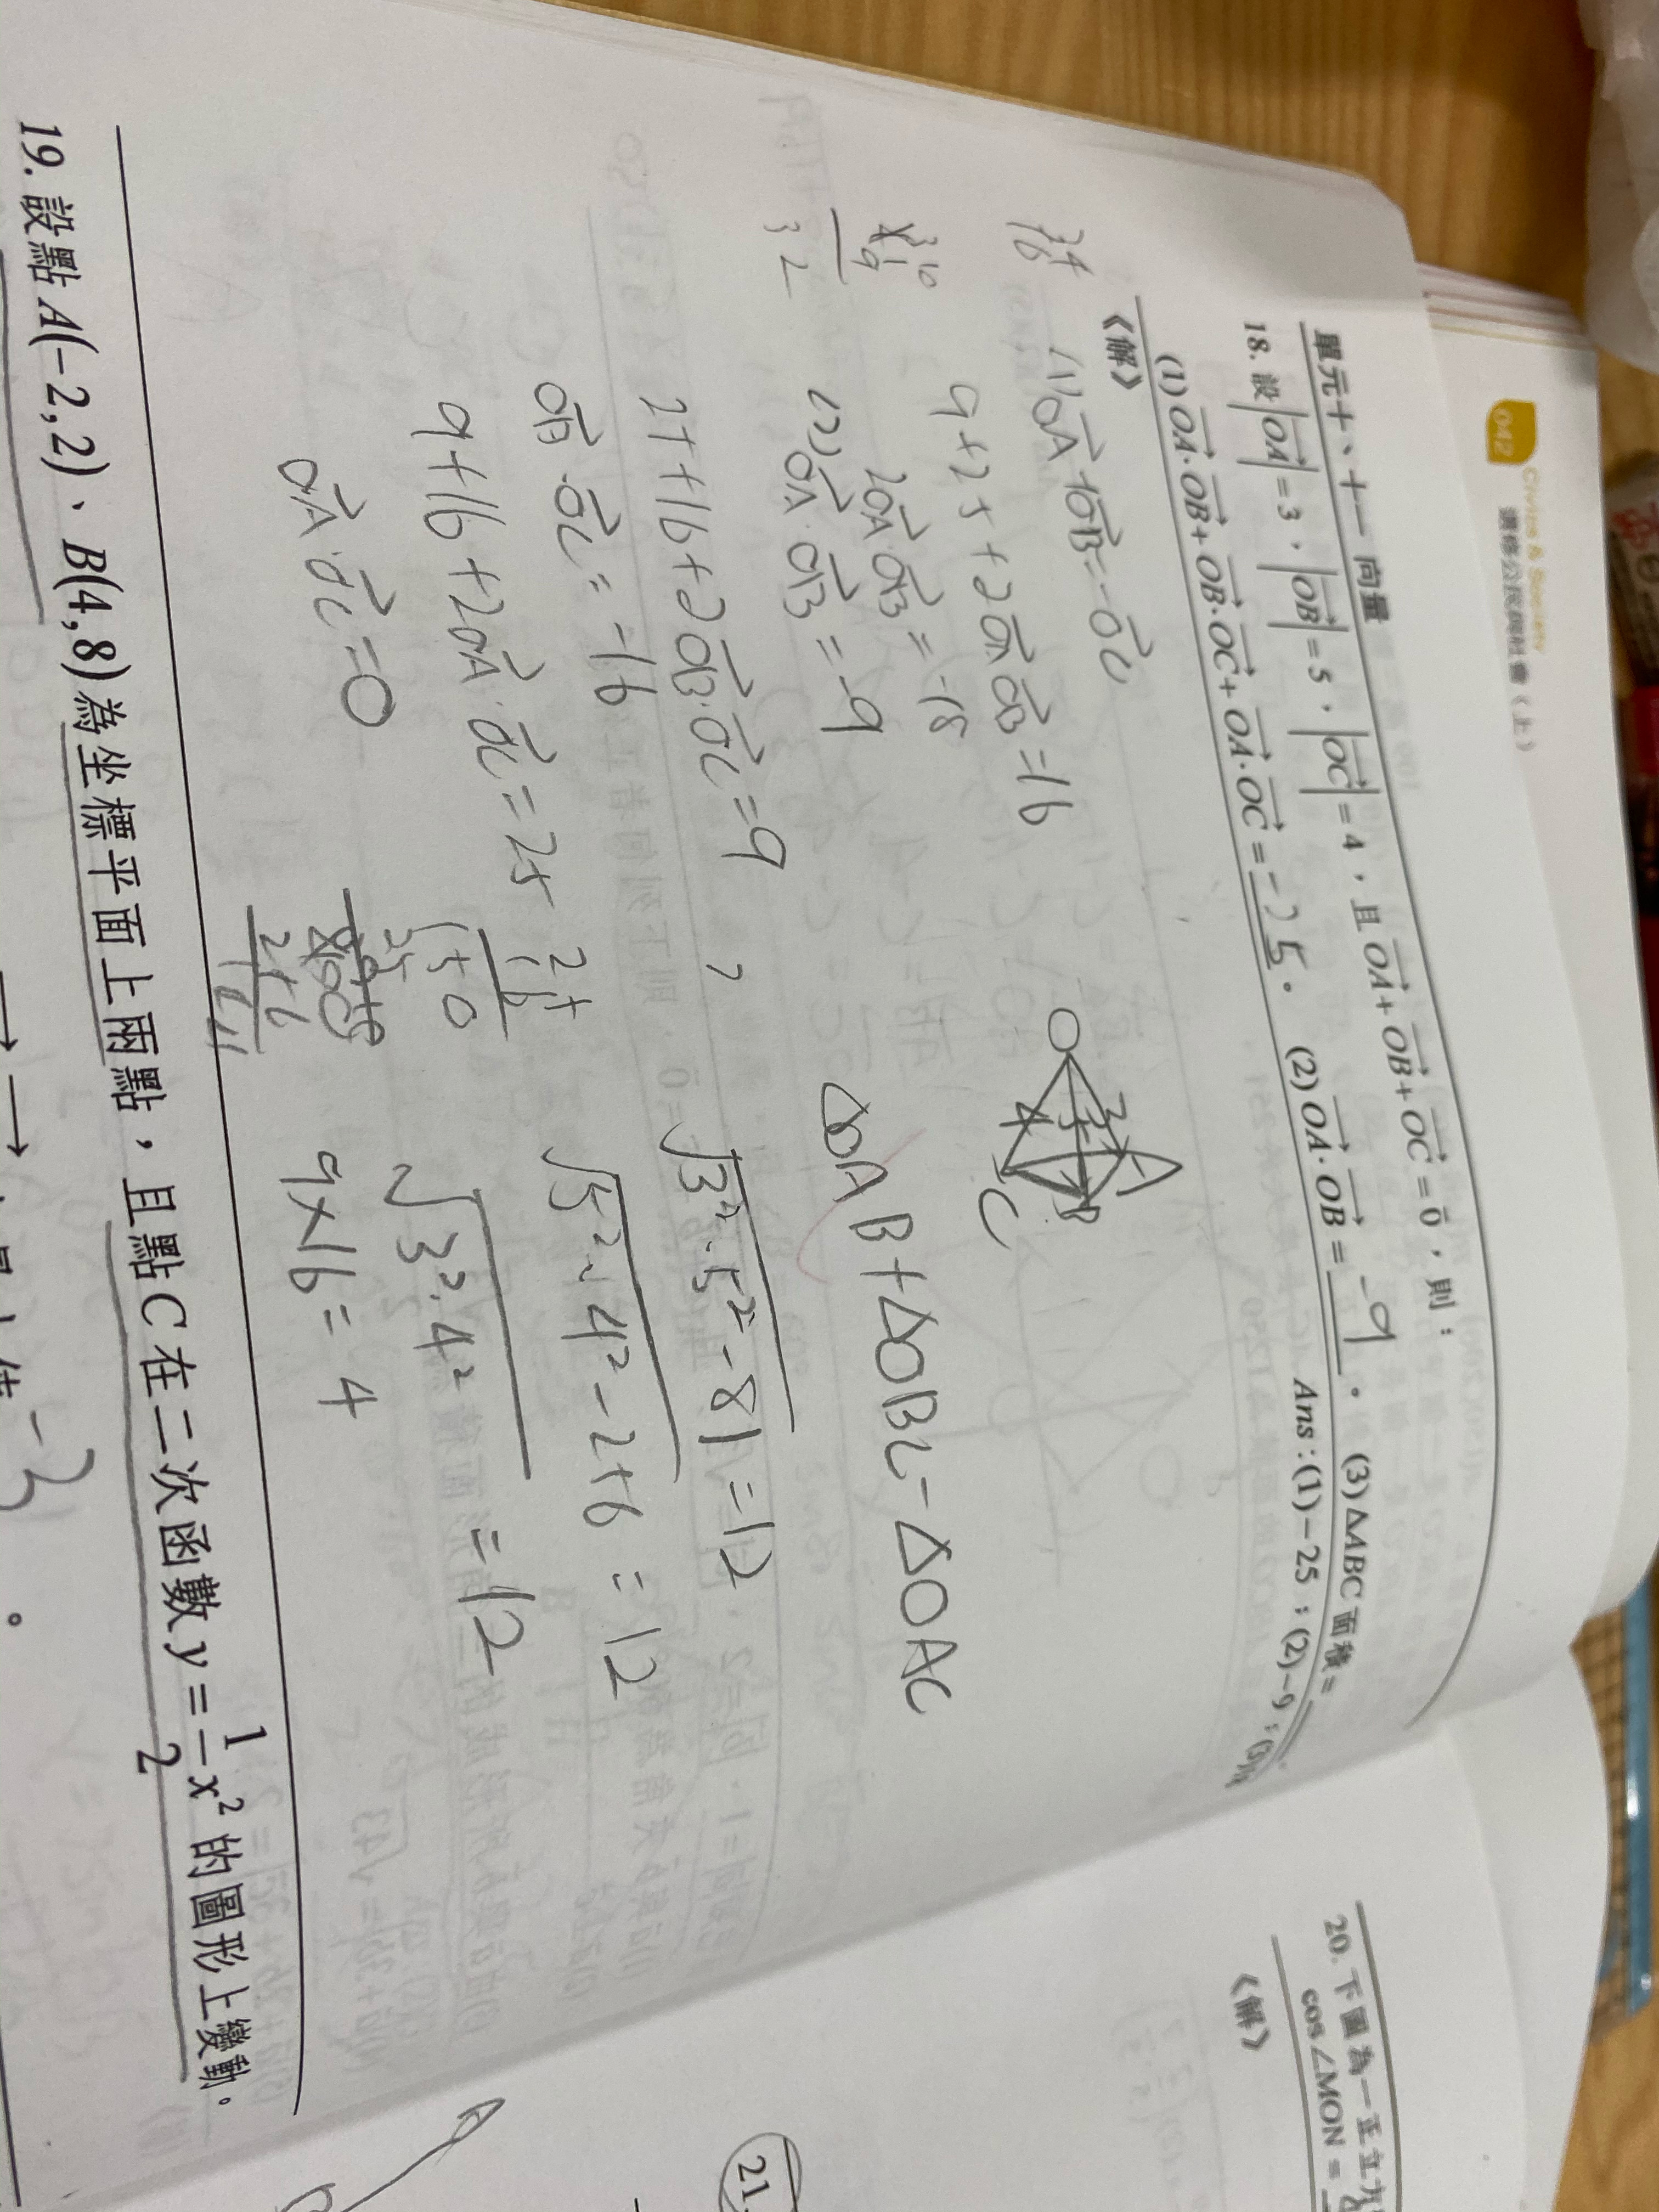 042
Civics & Society
選修公民與社會(上)
單元十、十一 向量
18. 設|OA|=3,|OB|=5,|OC|=4,且OA+OB+OC=0,則:
(1)OA·OB+OB·OC+OA·OC=-25。 (2)OA·OB=-9。 (3)ΔABC面積=
Ans:(1)-25;(2)-9;(3)
《解》
(1) OA+OB=-OC
9+25+2OA OB=16
2OA·OB=-18
(2) OA·OB=-9
25+16+2OB·OC=9
OB·OC=-16
9+16+2OA·OC=25
OA·OC=0
34
16
3 2
O
A
B
C
3
5
4
ΔOAB+ΔOBC-ΔOAC
√3²·5²-81=12
√5²·4²-256=12
√3²·4² =12
9×16=4
25
16
150
25
400
256
19. 設點A(-2,2)、B(4,8)為坐標平面上兩點,且點C在二次函數y=1/2x²的圖形上變動。
-3
20. 下圖為一正立方
cos∠MON=
《解》
A
21.